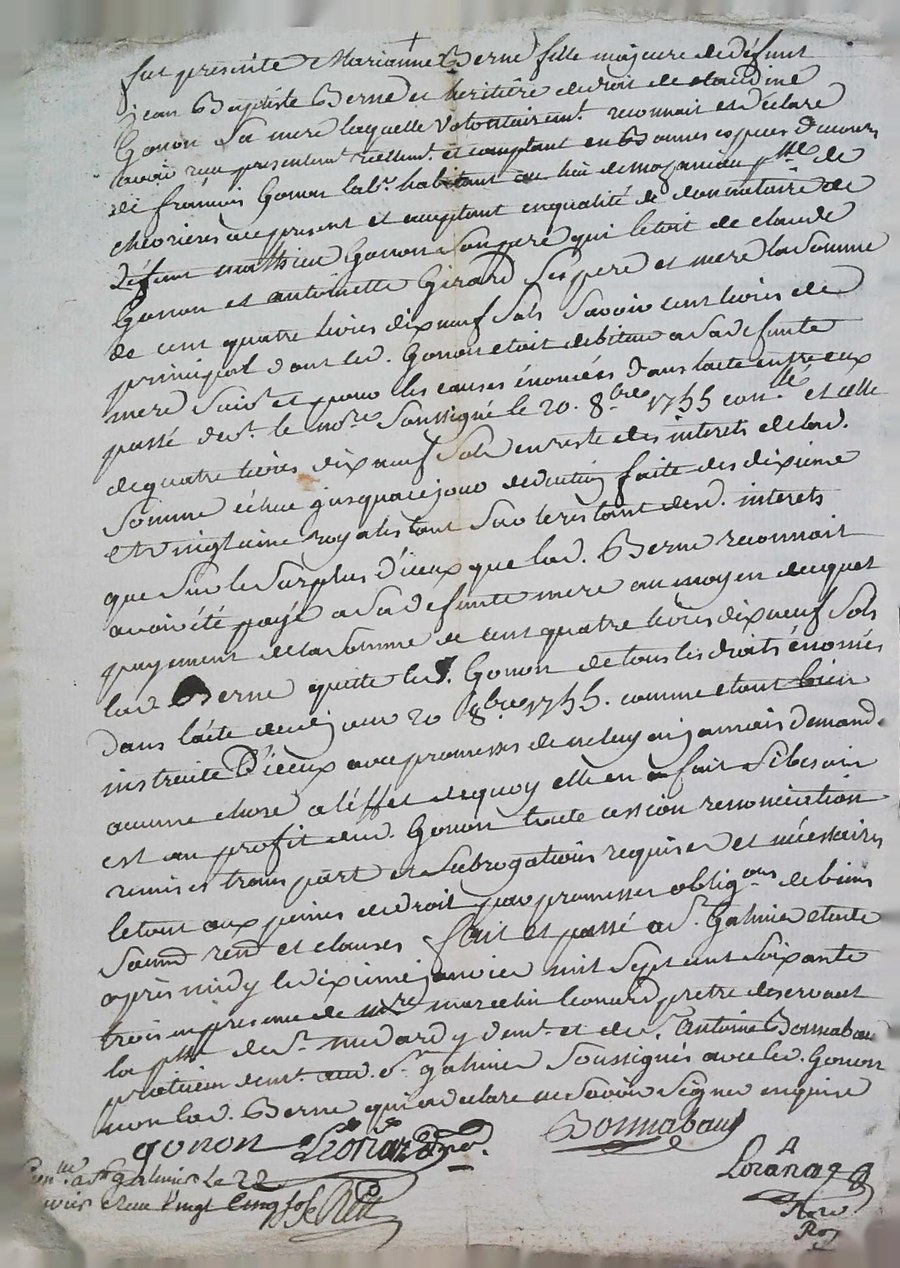 fut presente Marianne Berne fille majeure de défunt
jean Baptiste Berne et heritière de droit de claudine
Gonon Sa mere laquelle volontairemt. reconnait et déclare
avoir reçu presentemt. reellemt. et comptant en Bonnes espèces de cours
de françois Gonon labr. habitant au lieu de psse. de
chevrieres icy present et acceptant en qualité de donnataire de
defunt mathieu Gonon Son pere qui l'etoit de claude
Gonon et antoinette Girard Ses pere et mere la Somme
de cent quatre livres dix neuf Sols Savoir cent livres de
principal dont led. Gonon etoit debiteur a Sa defunte
mere Suivt. et pour les causes énoncées dans l'acte entre eux
passé devt. le nore Soussigné le 20. 8bre 1755 conllé et celle
de quatre livres dix neuf Sols en reste des interets de lad.
Somme échue jusqua ce jour deduction faite des dixieme
et vingtieme royales tant Sur le restant desd. interets
que Sur le Surplus d'iceux que lad. Berne reconnait
avoir été payé a Sa defunte mere au moyen duquel
payement de la Somme de cent quatre livres dix neuf Sols
lad Berne quitte led. Gonon de tous les droits énoncés
dans l'acte dud jour 20 8bre 1755. comme etant bien
instruite D'iceux avec promesses de ne luy en jamais demand.
aucune chose a l'éffet de quoy elle en a fait Si besoin
est au profit dud. Gonon toute cession renonciation
remises transport et Subrogations requises et nécessaires
le tout aux peines de droit par promesses obligons de biens
Soumd rend et clauses fait et passé a St. Galmier etude
après midy le dixieme janvier mil Sept cent Soixante
trois en presence de mre marcelin leonard pretre desservant
la psse de St. medard y demt. et de Sr. antoine Bonnabaud
praticien demt. aud. St. galmier Soussignés avec led. Gonon
non lad. Berne qui a declaré ne Savoir Signer enquise
gonon Leonard pre. Bonnabaud
a St galmier le 22
Loranas
reçu vingt cinq sols
Nore
Ro